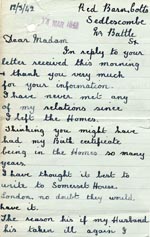 12/3/42
Red Barn, Cotts
Sedlescombe
Nr Battle
Sx
14 MAR 1942
Dear Madam
In reply to your
letter received this morning
& thank you very much
for your information.
I have never met any
of my relations since
I left the Homes.
Thinking you might have
had my Birth certificate
being in the Homes so many
years.
I have thought it best to
write to Somerset House.
London. no doubt they would
have it.
The reason his if my Husband
his taken ill again I